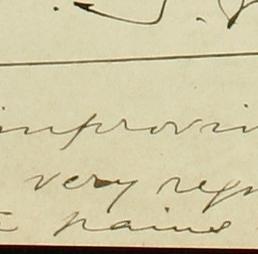 improvi
very regu
pains